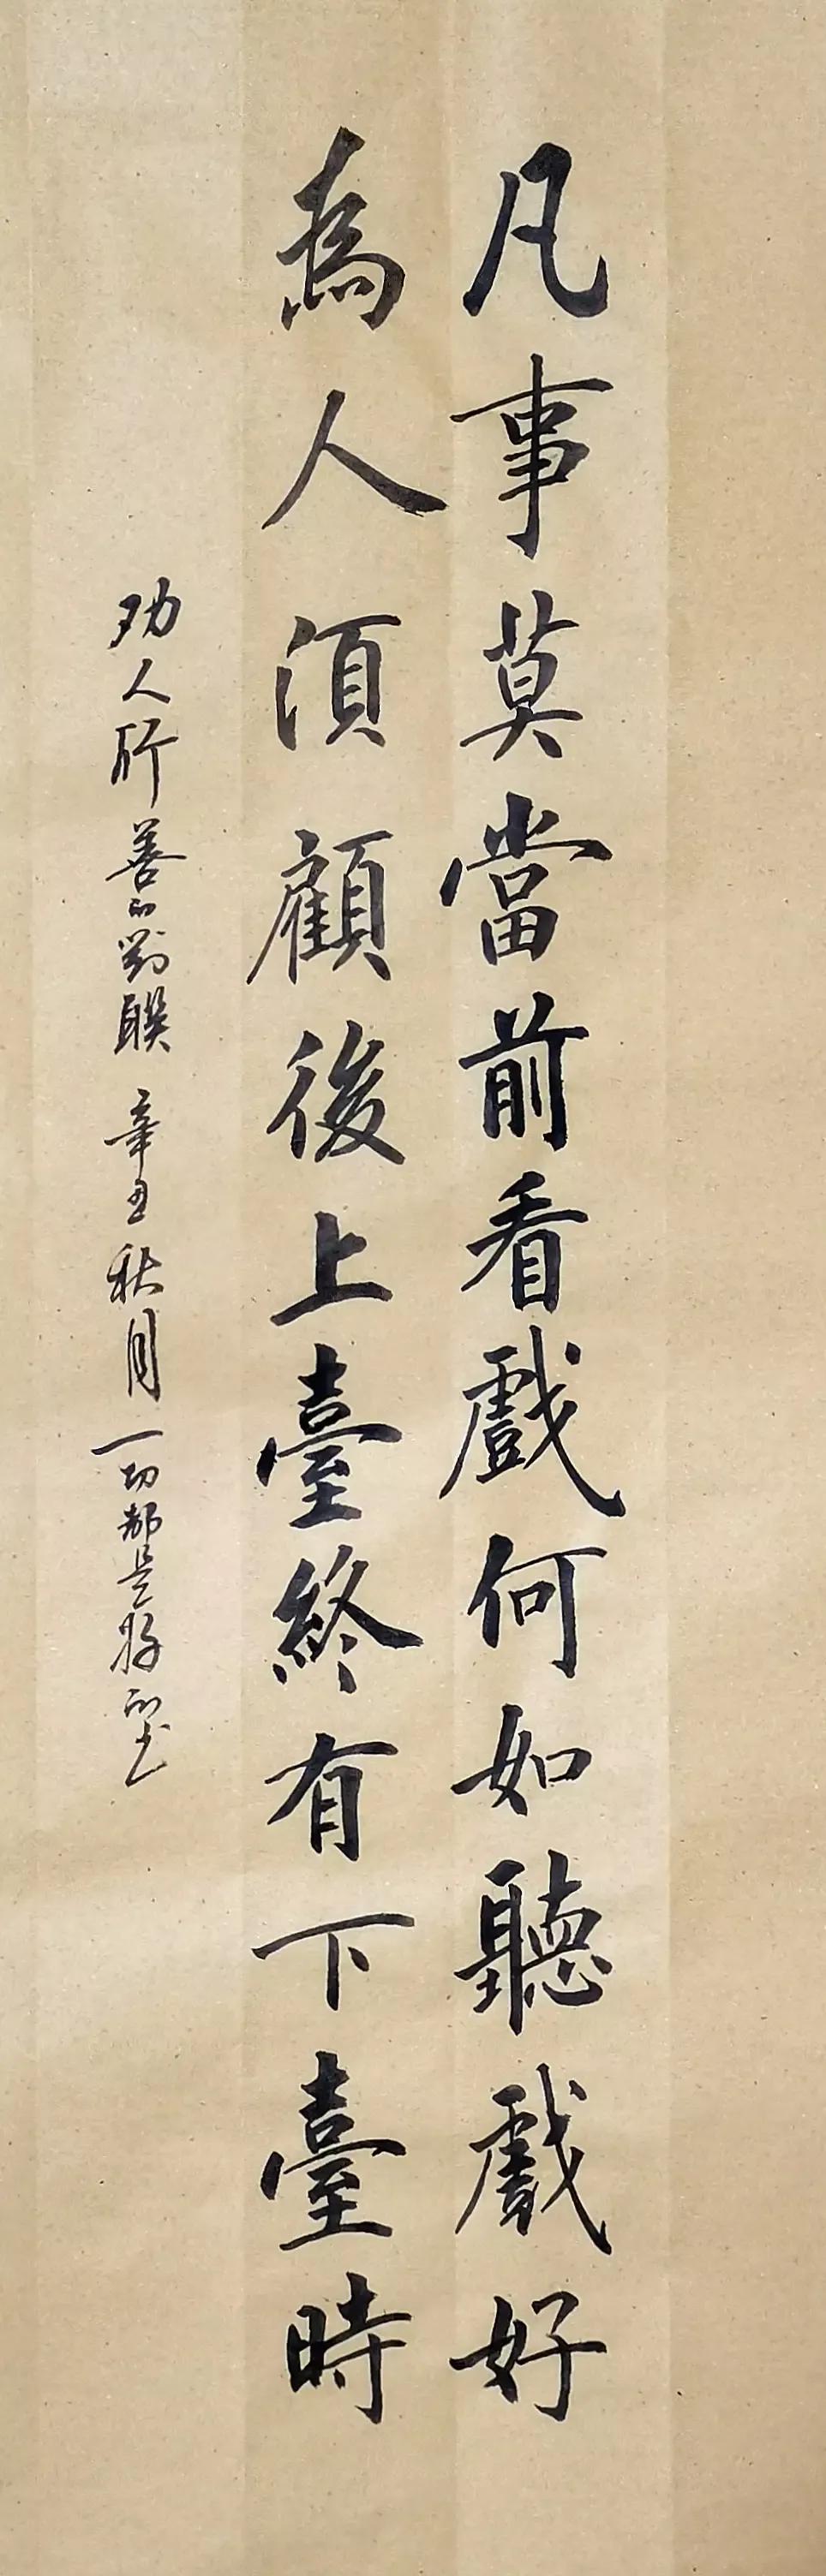 凡事莫當前看戲何如聽戲好
為人須顧後上臺終有下臺時
劝人所善的對聯 辛丑秋月 一切都是好的